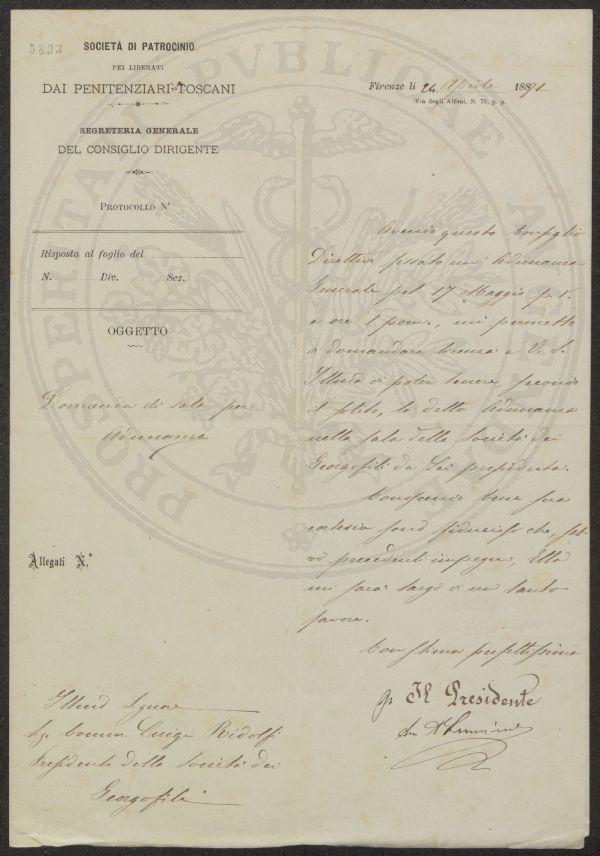 5893
SOCIETÀ DI PATROCINIO
PEI LIBERATI
DAI PENITENZIARI TOSCANI
SEGRETERIA GENERALE
DEL CONSIGLIO DIRIGENTE
PROTOCOLLO N°
Risposta al foglio del
N. Div. Sez.
OGGETTO
Domanda di sala per
Adunanza
Allegati N.°
Firenze li 24 Aprile 1891
Via degli Alfani, N. 78, p. p.
Avendo questo Consiglio
Direttivo fissato un' Adunanza
Generale pel 17 Maggio p. v.
a ore 1 pom., mi permetto
di domandare licenza a V. S.
Illma di poter tenere, secondo
il solito, la detta Adunanza
nella sala della Società dei
Georgofili da Lei presieduta.
Conoscendo bene sua
cortesia sono che, sal-
vo precedenti impegni, Ella
mi sarà largo di un tanto
favore.
Con stima perfettissima
p Il Presidente
Illmo Signore
Sig. Comm. Luigi Ridolfi
Presidente della Società dei
Georgofili
PROSPERITATI PVBLICAE AVGENDAE